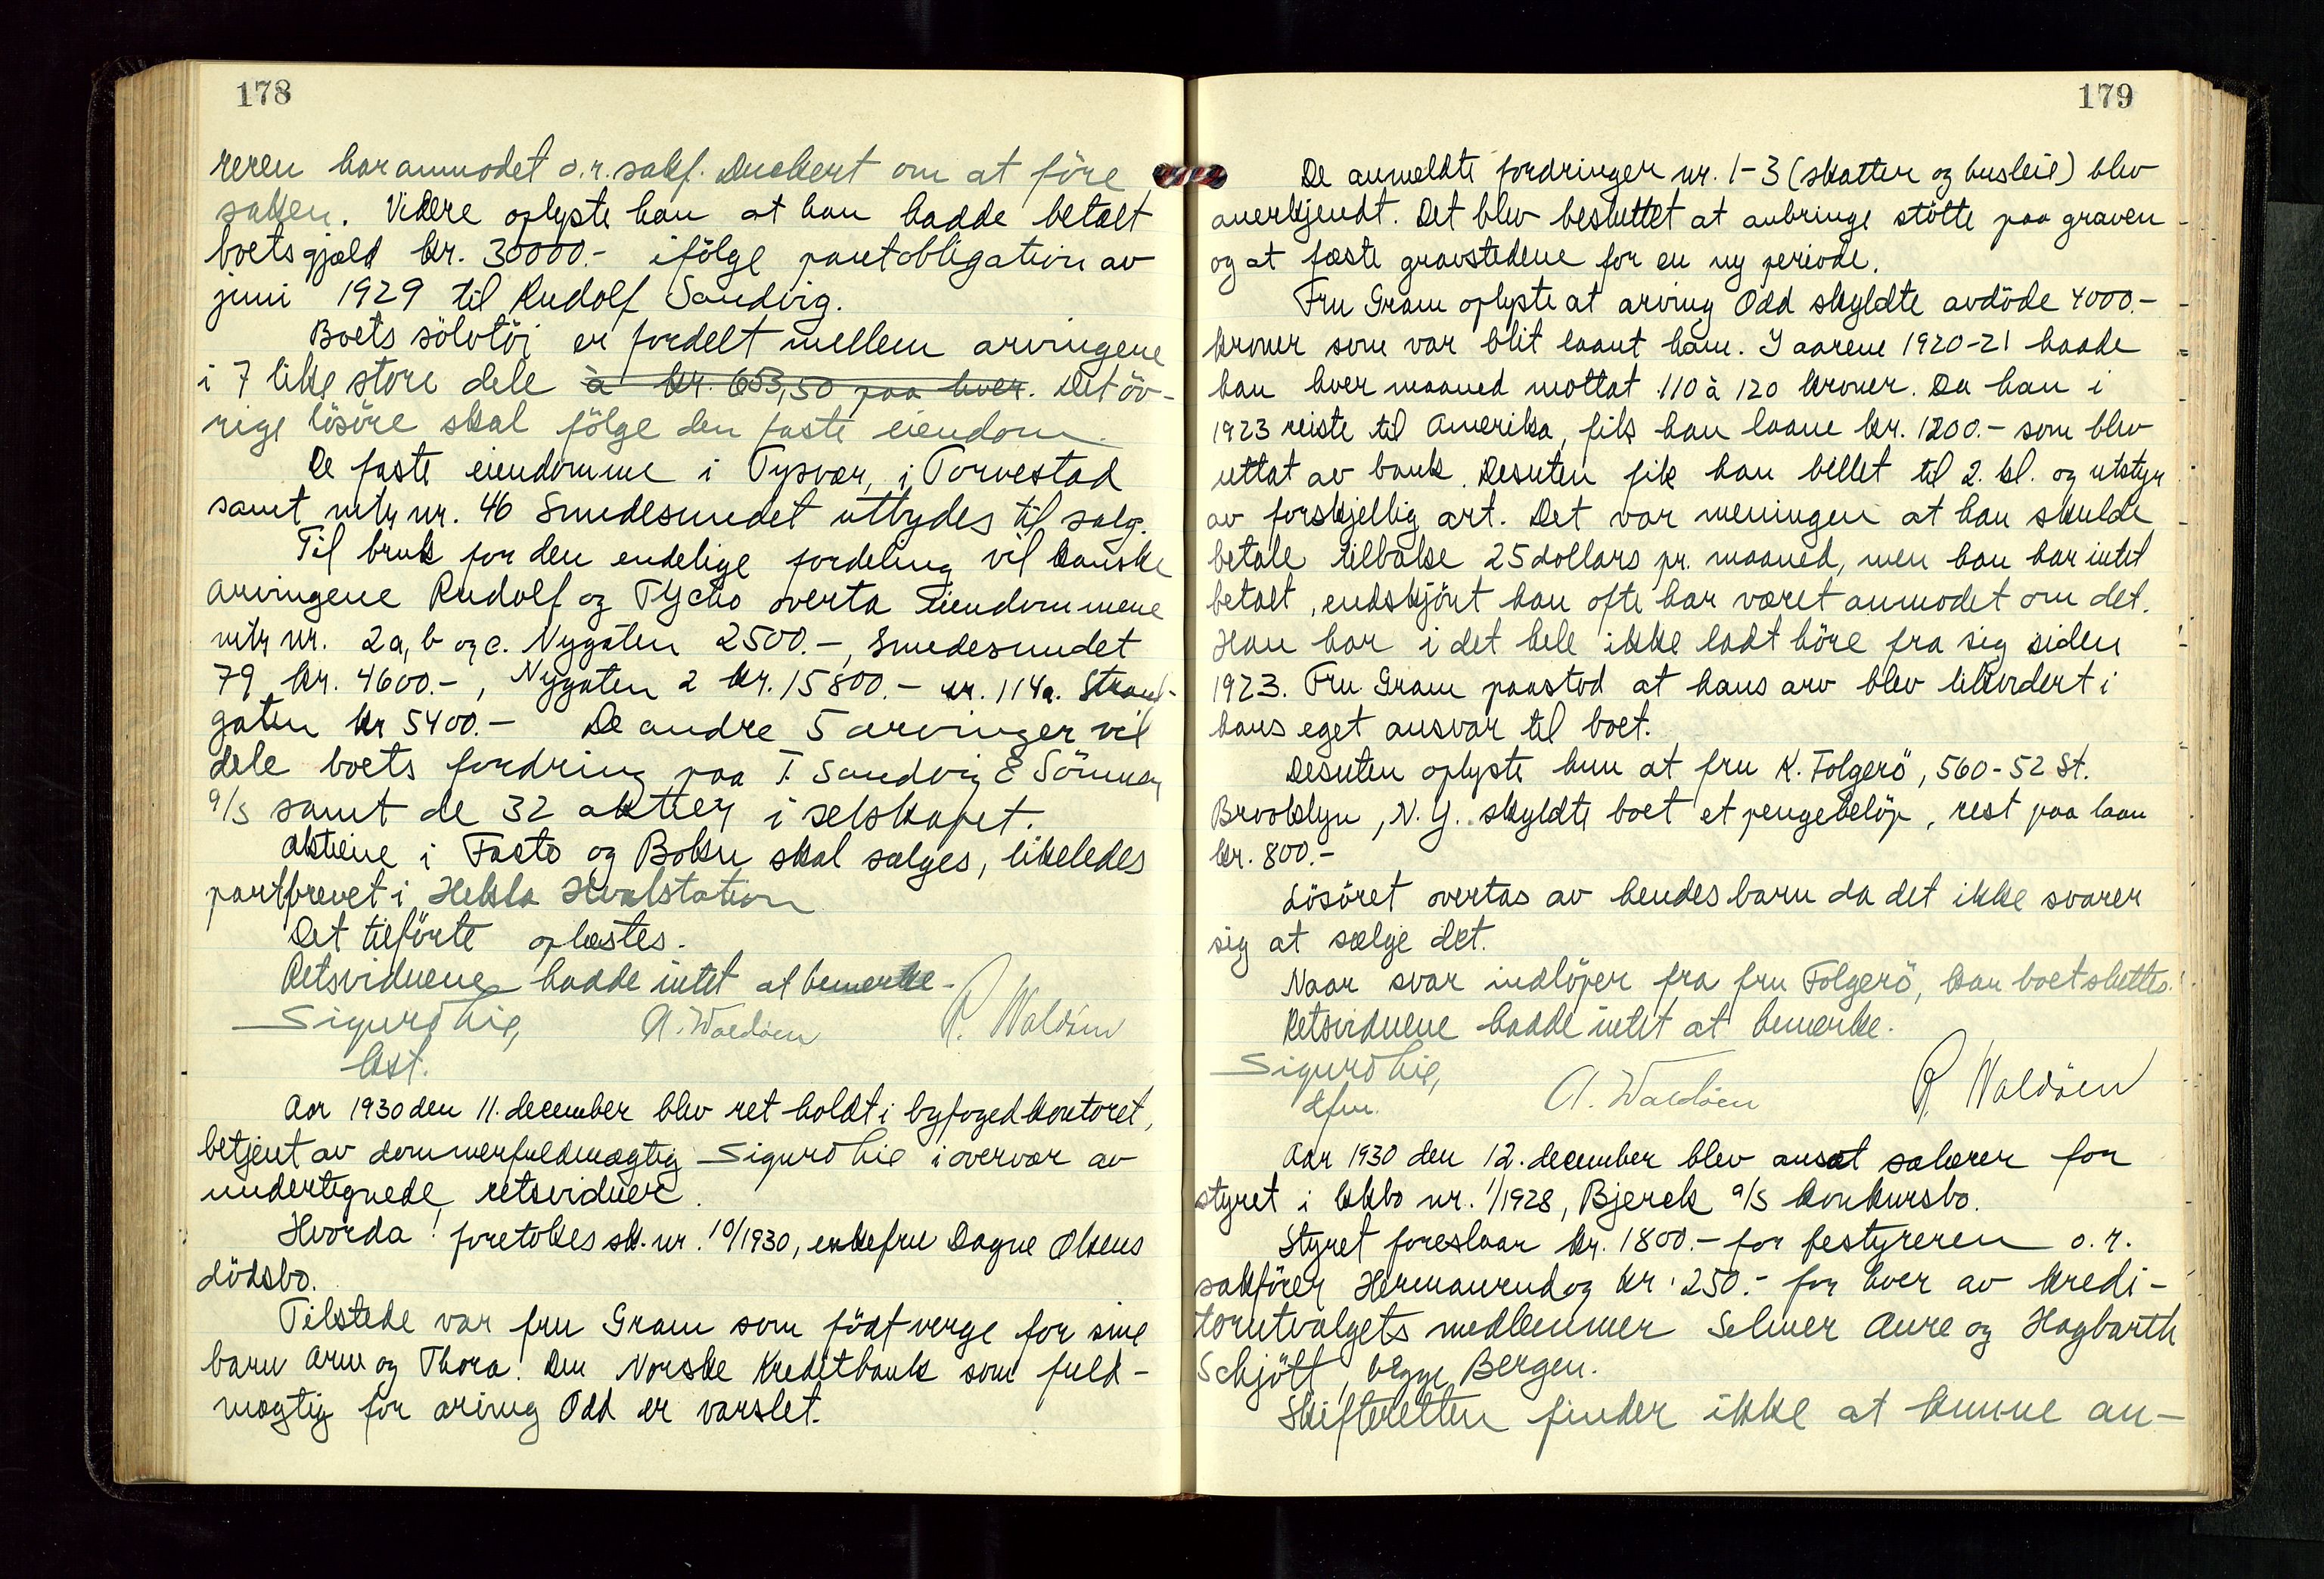 178
reren har anmodet o.r.sakf. Duckert om at före
saken. Videre oplyste han at han hadde betalt
boets gjæld kr. 30000.- ifölge pantobligation av
juni 1929 til Rudolf Sandvig.
Boets sölvtöi er fordelt mellem arvingene
i 7 like store dele à kr. 653,50 paa hver. Det öv-
rige lösöre skal fölge den faste eiendom.
De faste eiendomme i Tysvær, i Torvestad
samt mtr nr. 46 Smedesundet utbydes til salg.
Til bruk for den endelige fordeling vil kanske
arvingene Rudolf og Tycho overta eiendommene
mtr nr. 2a, b og c. Nygaten 2500.-, Smedesundet
79 kr. 4600.-, Nygaten 2 kr. 15800.- nr. 114a. Strand-
gaten kr 5400.- De andre 5 arvinger vil
dele boets fordring paa T. Sandvig & Sönner
a/s samt de 32 aktier i selskapet.
Aktiene i Fasto og Bokn skal sælges, likeledes
partbrevet i Hekla Hvalstation
Det tilförte oplæstes.
Retsvidnene hadde intet at bemerke.
Sigurd Lie, A. Waldöen R. Waldöen
kst.
Aar 1930 den 11. december blev ret holdt i byfogedkontoret,
betjent av dommerfuldmægtig Sigurd Lie i overvær av
undertegnede retsvidner.
Hvorda! foretokes sk. nr. 10/1930, enkefru Dagne Olsens
dödsbo.
Tilstede var fru Gram som födt verge for sine
barn Arne og Thora. Den Norske Kreditbank som fuld-
mægtig for arving Odd er varslet.
179
De anmeldte fordringer nr. 1-3 (skatter og husleie) blev
anerkjendt. Det blev besluttet at anbringe stötte paa graven
og at fæste gravstedene for en ny periode.
Fru Gram oplyste at arving Odd skyldte avdöde 4000.-
kroner som var blit laant ham. I aarene 1920-21 hadde
han hver maaned mottat 110 à 120 kroner. Da han i
1923 reiste til Amerika, fik han laane kr. 1200.- som blev
uttat av bank. Desuten fik han billet til 2. kl. og utstyr
av forskjellig art. Det var meningen at han skulde
betale tilbake 25 dollars pr. maaned, men han har intet
betalt, endskjönt han ofte har været anmodet om det.
Han har i det hele ikke ladt höre fra sig siden
1923. Fru Gram paastod at hans arv blev likvidert i
hans eget ansvar til boet.
Desuten oplyste hun at fru K. Folgerö, 560-52 St.
Brooklyn, N. Y. skyldte boet et pengebelöp, rest paa laan
kr. 800.-
Lösöret overtas av hendes barn da det ikke svarer
sig at sælge det.
Naar svar indlöper fra fru Folgerö, kan boet sluttes.
Retsvidnene hadde intet at bemerke.
Sigurd Lie, A. Waldöen R. Waldöen
dfm.
Aar 1930 den 12. december blev ansat salærer for
styret i kkbo nr. 1/1928, Bjerck a/s konkursbo.
Styret foreslaar kr. 1800.- for bestyreren o. r.
sakförer Hermanrud og kr. 250.- for hver av kredi-
torutvalgets medlemmer Selmer Aure og Hagbarth
Schjött, begge Bergen.
Skifteretten finder ikke at kunne an-